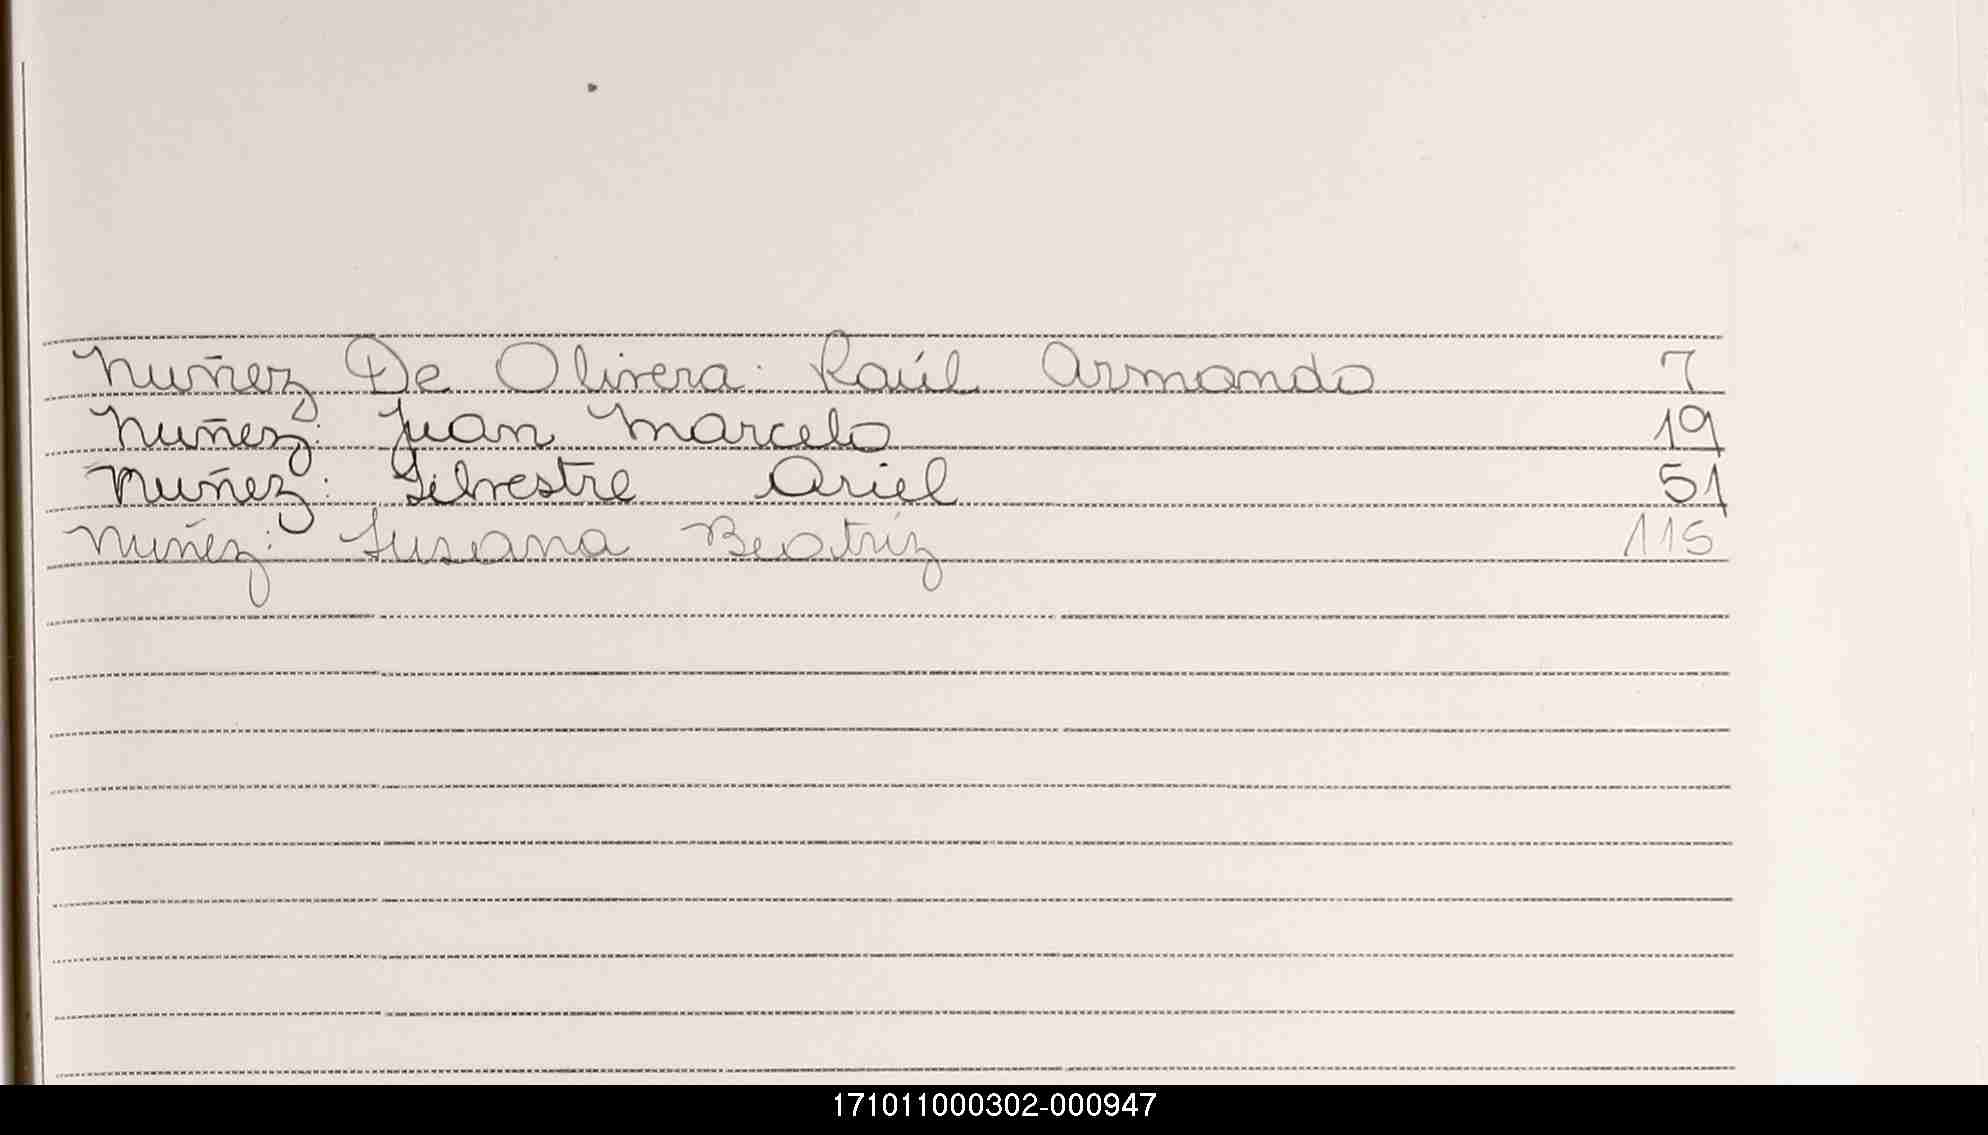 Nuñez De Olivera: Raúl Armando 7
Nuñez: Juan Marcelo 19
Nuñez: Silvestre Ariel 51
Nuñez: Susana Beatríz 115
171011000302-000947